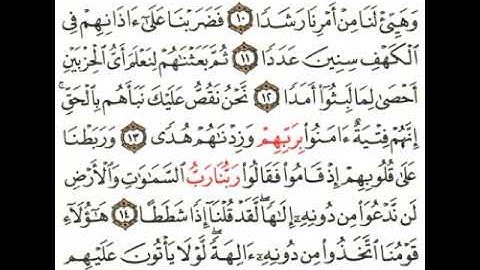 وَهَيِّئْ لَنَا مِنْ أَمْرِنَا رَشَدًا ١٠ فَضَرَبْنَا عَلَىٰٓ ءَاذَانِهِمْ فِى
ٱلْكَهْفِ سِنِينَ عَدَدًا ١١ ثُمَّ بَعَثْنَـٰهُمْ لِنَعْلَمَ أَىُّ ٱلْحِزْبَيْنِ
أَحْصَىٰ لِمَا لَبِثُوٓا۟ أَمَدًا ١٢ نَّحْنُ نَقُصُّ عَلَيْكَ نَبَأَهُم بِٱلْحَقِّ ۚ
إِنَّهُمْ فِتْيَةٌ ءَامَنُوا۟ بِرَبِّهِمْ وَزِدْنَـٰهُمْ هُدًى ١٣ وَرَبَطْنَا
عَلَىٰ قُلُوبِهِمْ إِذْ قَامُوا۟ فَقَالُوا۟ رَبُّنَا رَبُّ ٱلسَّمَـٰوَٰتِ وَٱلْأَرْضِ
لَن نَّدْعُوَا۟ مِن دُونِهِۦٓ إِلَـٰهًا ۖ لَّقَدْ قُلْنَآ إِذًا شَطَطًا ١٤ هَـٰٓؤُلَآءِ
قَوْمُنَا ٱتَّخَذُوا۟ مِن دُونِهِۦٓ ءَالِهَةً ۖ لَّوْلَا يَأْتُونَ عَلَيْهِم